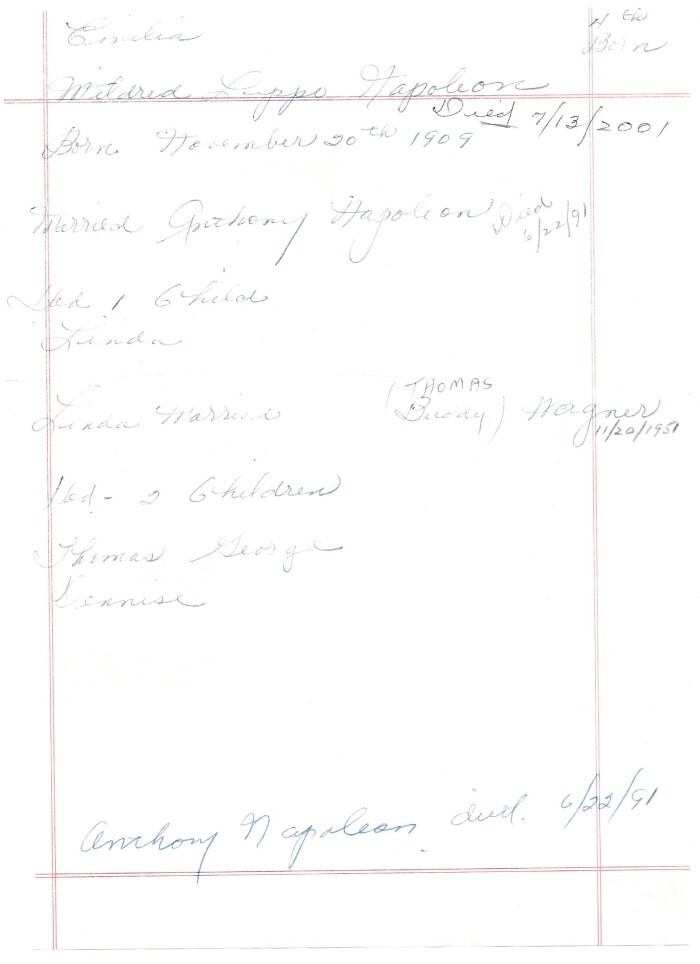 Emilia
4th
Born
Mildred Luppo Napoleon
Died 7/13/2001
Born November 20th 1909
Married Anthony Napoleon Died
6/22/91
Had 1 Child
Linda
Linda Married (THOMAS
Buddy) Wagner
11/20/1951
Had - 2 Children
Thomas George
Dennise
Anthony Napoleon died. 6/22/91